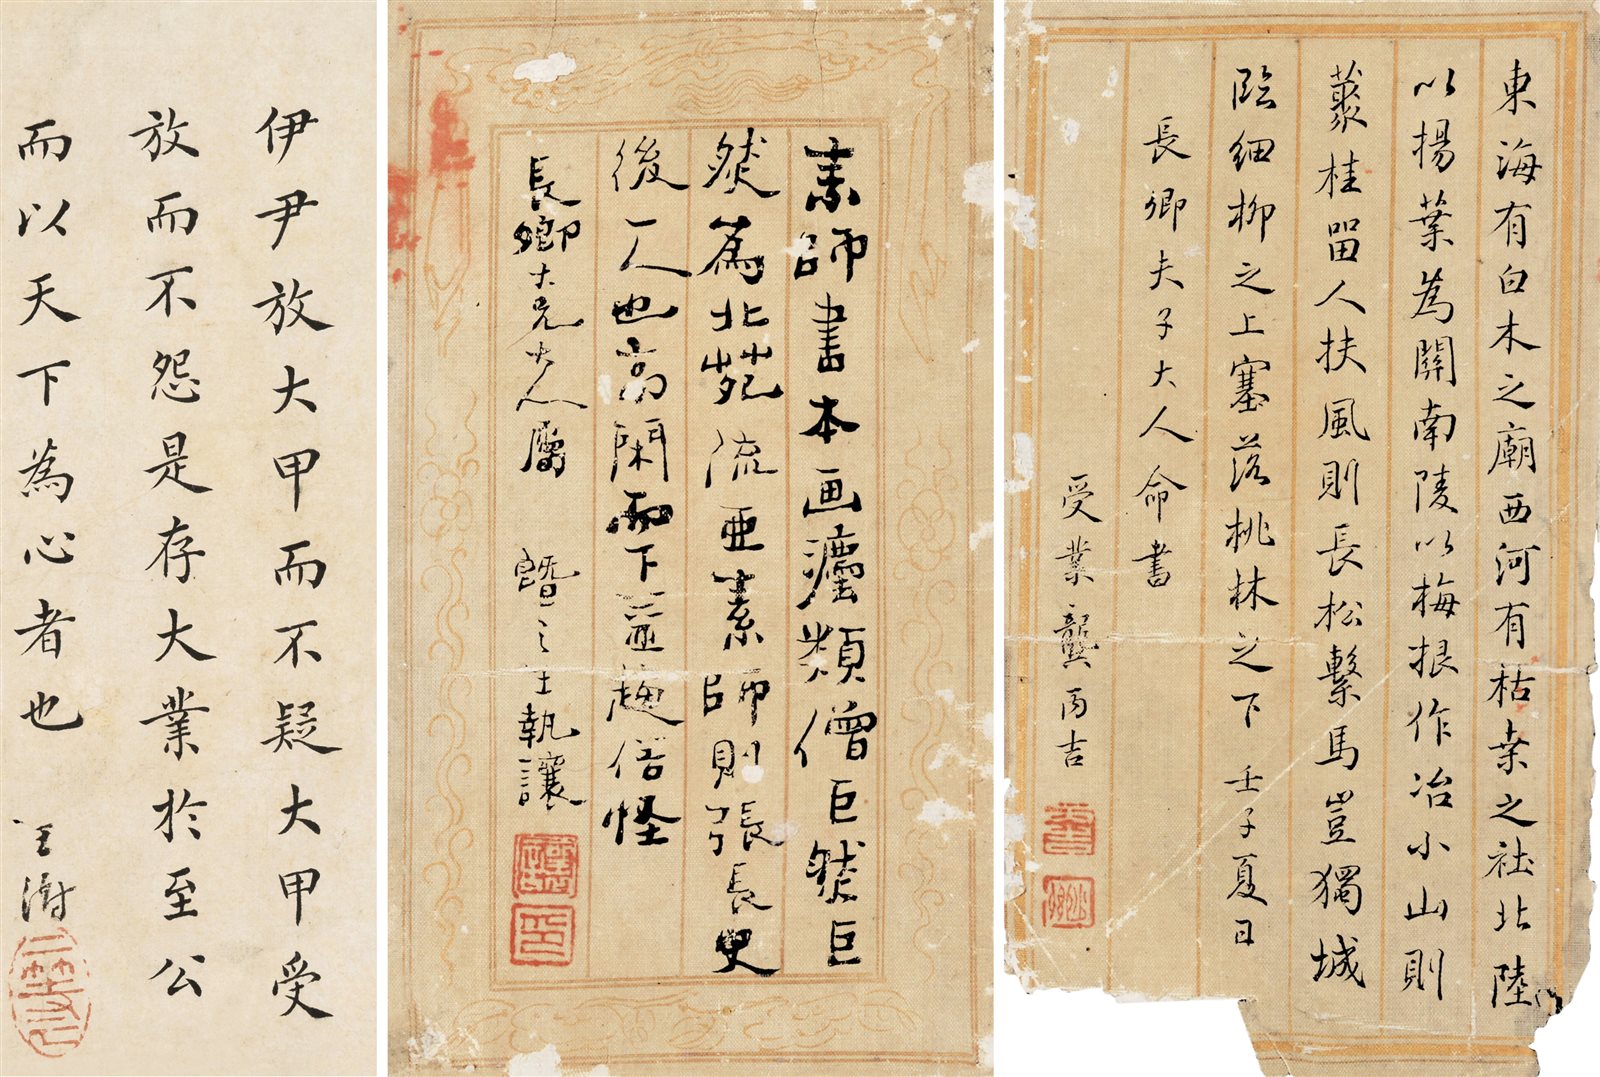 東海有白木之廟西河有枯桒之社北陸
以揚葉為關南陵以梅根作冶小山則
叢桂留人扶風則長松繫馬豈獨城
臨細柳之上塞落桃林之下 壬子夏日
長卿夫子大人命書
受業龔丙吉
素師書本画灋類僧巨然巨
然為北苑流亜素師則張長史
後一人也高閑而下益趨俗怪
長卿大兄大人屬 王執讓
伊尹放大甲而不疑大甲受
放而不怨是存大業於至公
而以天下為心者也 王澍